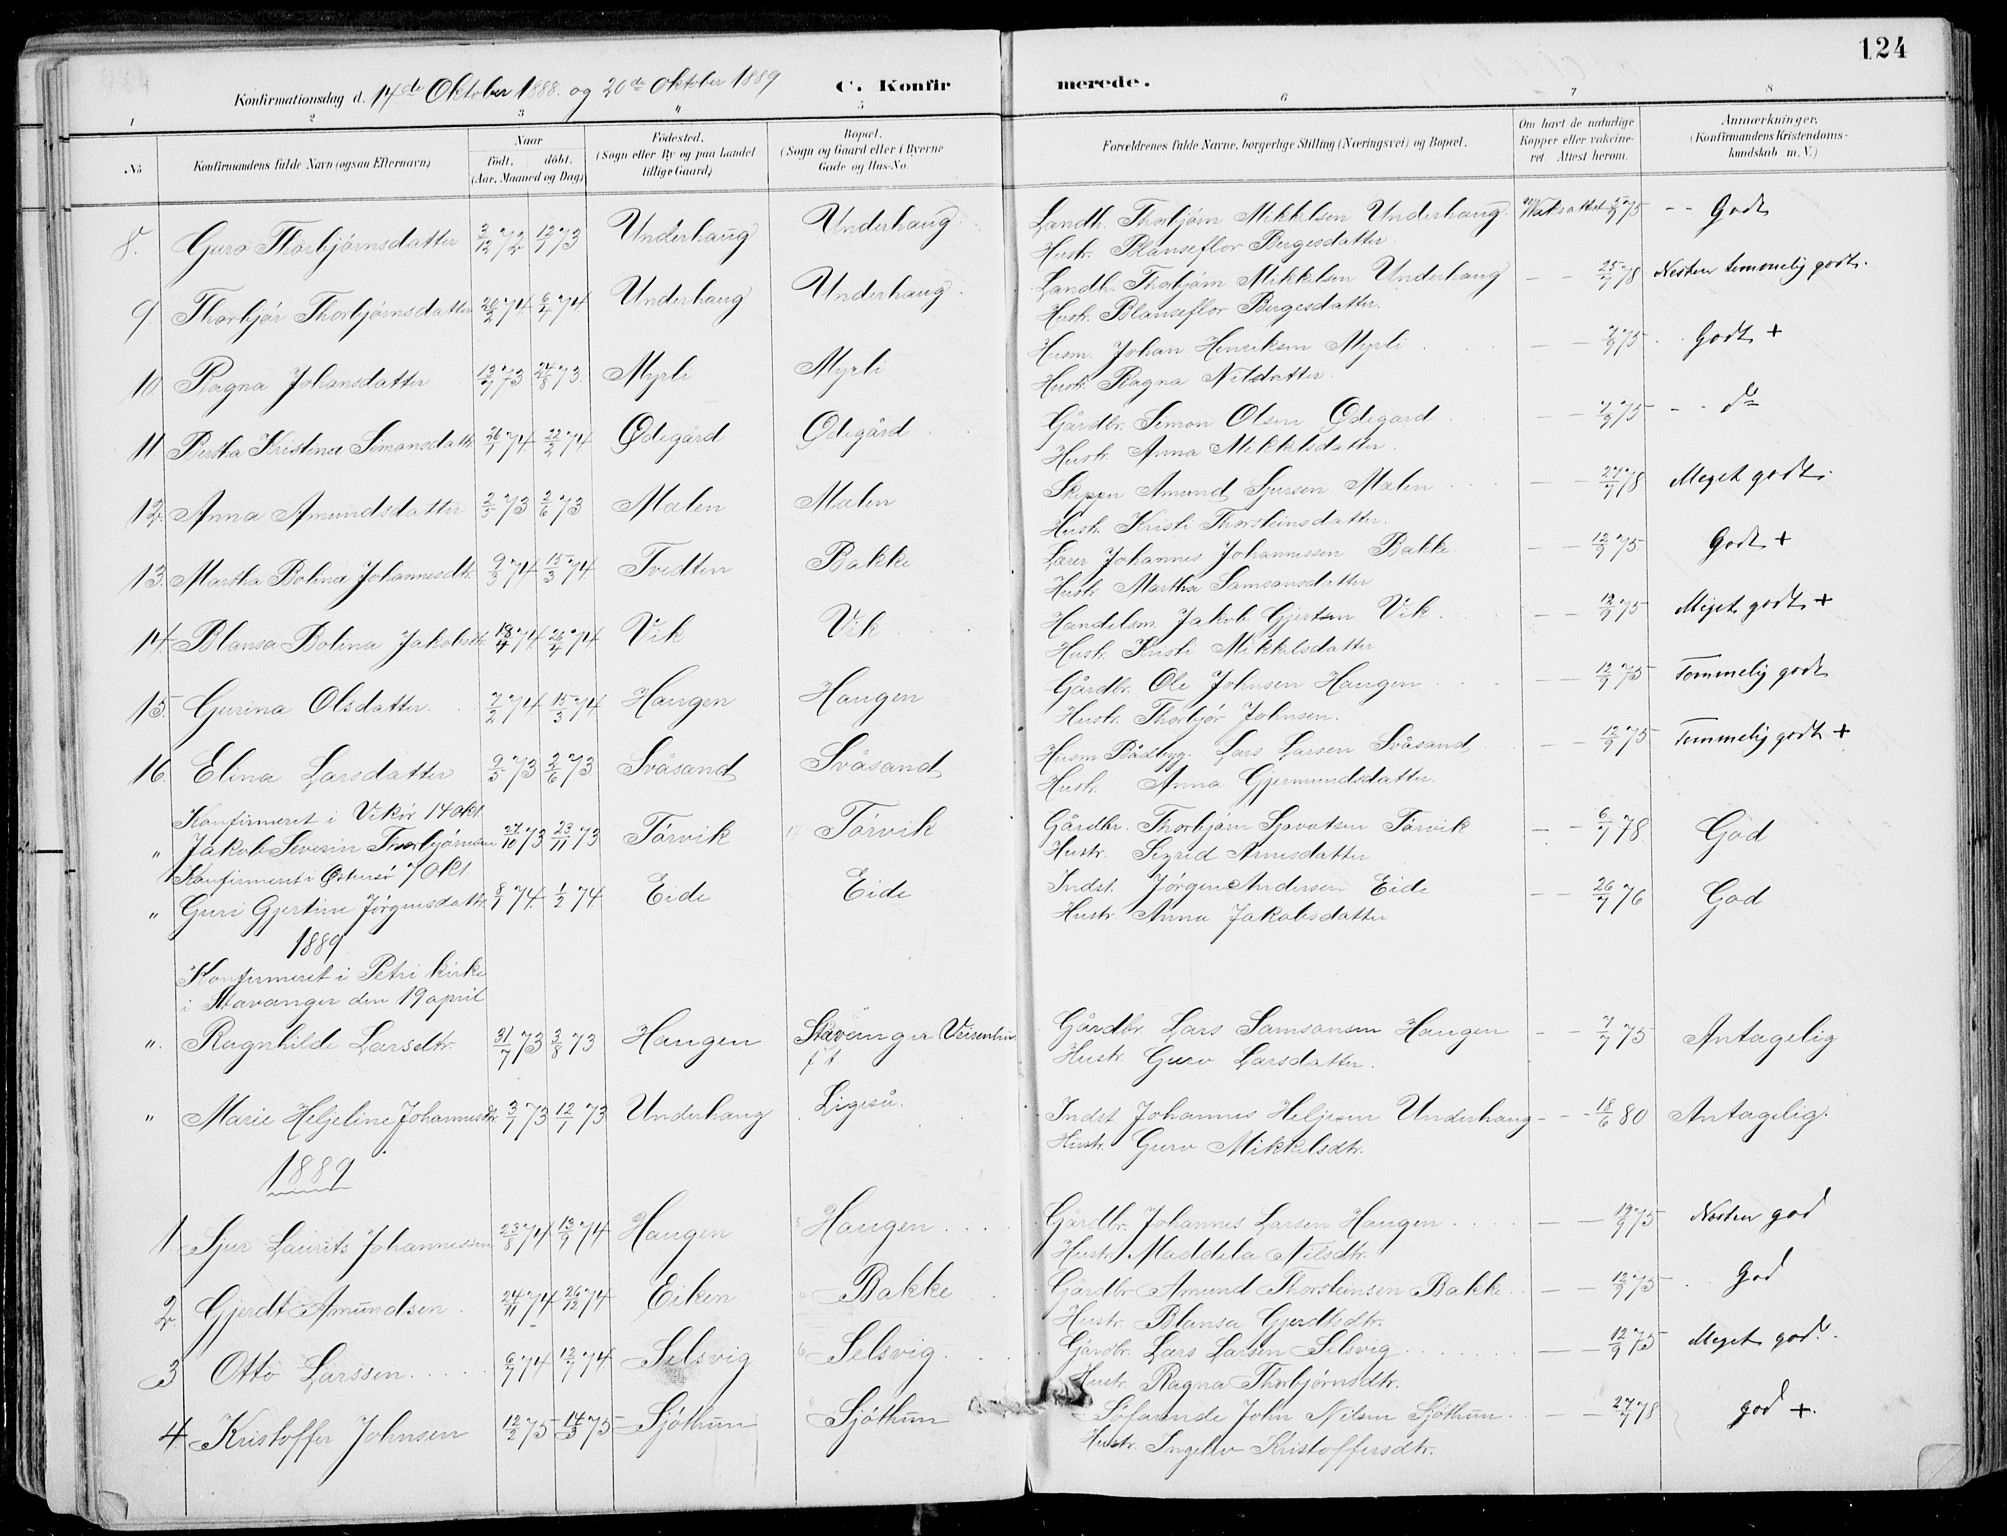 124
Konfirmationsdag d. 14de Oktober 1888. og 20de Oktober 1889 C. Konfirmerede.
1 2 3 4 5 6 7 8
No Konfirmandens fulde Navn (ogsaa Efternavn) Naar født. døbt. (Aar, Maaned og Dag) Fødested. (Sogn eller By og paa Landet tillige Gaard) Bopæl. (Sogn og Gaard eller i Byerne Gade og Hus-No. Forældrenes fulde Navne, borgerlige Stilling (Næringsvei) og Bopæl. Om havt de naturlige Kopper eller vaccineret Attest herom. Anmærkninger. (Konfirmandens Kristendomskundskab m. V.)
8. Guro Thorbjørnsdatter 3/12 72 12/1 73 Underhaug Underhaug Landh. Thorbjørn Mikkelsen Underhaug. 75 Godt
Hustr. Blanseflor Bergesdatter.
9. Thorbjør Thorbjørnsdatter 26/2 74 6/4 74 Underhaug Underhaug Landh. Thorbjørn Mikkelsen Underhaug 78 Nesten temmelig godt.
Hustr. Blanseflor Bergesdatter.
10. Ragna Johansdatter 73 24/8 73 Myrli Myrli Husm. Johan Henriksen Myrli 75 Godt +
Hustr. Ragna Nilsdatter.
11 Berta Kristina Simonsdatt. 26/1 74 22/2 74 Ødegård Ødegård Gårdbr. Simon Olsen Ødegard 75 do
Hustr. Anna Mikkelsdatter.
12 Anna Amundsdatter 2/5 73 2/6 73 Mælen Mælen Skipper Amund Sjursen Mælen 27/7 78 Meget godt.
Hustr. Kristi Thorsteinsdatter.
13. Martha Bolina Johannesdtr. 9/3 74 15/3 74 Tvedten Bakke Lærer Johannes Johannessen Bakke 12/9 75 Godt +
Hustr. Martha Samsonsdatter
14. Blansa Bolina Jakobsdtr. 18/4 74 26/4 74 Vik Vik Handelsm. Jakob Gjertsen Vik 12/9 75 Meget godt +
Hustr. Kristi Mikkelsdatter
15. Gurina Olsdatter. 7/2 74 15/3 74 Haugen Haugen Gårdbr. Ole Johnsen Haugen 12/9 75 Temmelig godt
Hustr. Thorbjør Johnsen.
16. Elina Larsdatter 9/5 73 2/6 73 Svåsand Svåsand Husm. Bådbyg. Lars Larsen Svåsand 12/9 75 Temmelig godt +
Hustr. Anna Gjermundsdatter.
Konfirmeret i Vikør 14 okt.
" Jakob Severin Thorbjørnsen 27/10 73 23/11 73 Tørvik Tørvik Gårdbr. Thorbjørn Sjovatsen Tørvik 6/7 78. God
Hustr. Sigrid Arnesdatter
Konfirmeret i Østensø 7 Okt.
" Guri Gjertine Jørgensdattr. 8/1 74. 1/2 74 Eide Eide Indst. Jørgen Andersen Eide 26/7 76 God
Hustr Anna Jakobsdatter
1889
Konfirmeret i Petri kirke
i Stavanger den 19 april
". Ragnhilde Larsdtr. 31/7 73 3/8 73 Haugen Stavanger Gårdbr. Lars Samsonsen Haugen 7/7 75 Antagelig
Hustr. Guro Larsdatter.
" Marie Heljeline Johannesdtr. 3/1 73 12/1 73 Underhaug Ligeså. Indst Johannes Heljesen Underhaug 18/6 80 Antagelig.
Hustr. Guro Mikkelsdtr.
1889
1 Sjur Laurits Johannessen 23/8 74 13/9 74 Haugen Haugen Gårdbr. Johannes Larsen Haugen 19/9 75 Nesten god
Hustr. Maddela Nilsdtr.
2 Gjerdt Amundsen 24/11 74 26/12 74 Eiken Bakke Gårdbr Amund Thorsteinsen Bakke 12/9 75 God
Hustr. Blansa Gjerdtsdtr.
3 Otto Larssen 6/7 74 12/7 74 Selsvig Selsvig. Gårdbr. Lars Larsen Selsvig 12/9 75 Meget god.
Hustr. Ragna Thorbjørnsdtr.
4. Kristoffer Johnsen 12/2 75 14/3 75 Sjøthun Sjøthun Søfarende John Nilsen Sjøthun. 27/7 78 god +.
Hustr. Ingelev Kristoffersdtr.